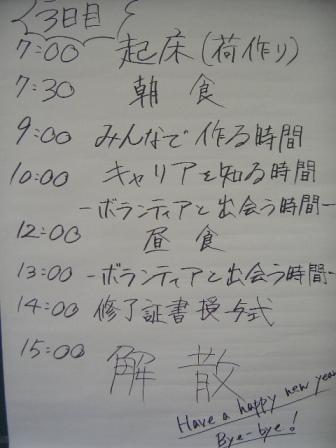 3日目
7:00 起床(荷作り)
7:30 朝食
9:00 みんなで作る時間
10:00 キャリアを知る時間
-ボランティアと出会う時間-
12:00 昼食
13:00 -ボランティアと出会う時間-
14:00 修了証書授与式
15:00 解散
Have a happy new year
Bye-bye!